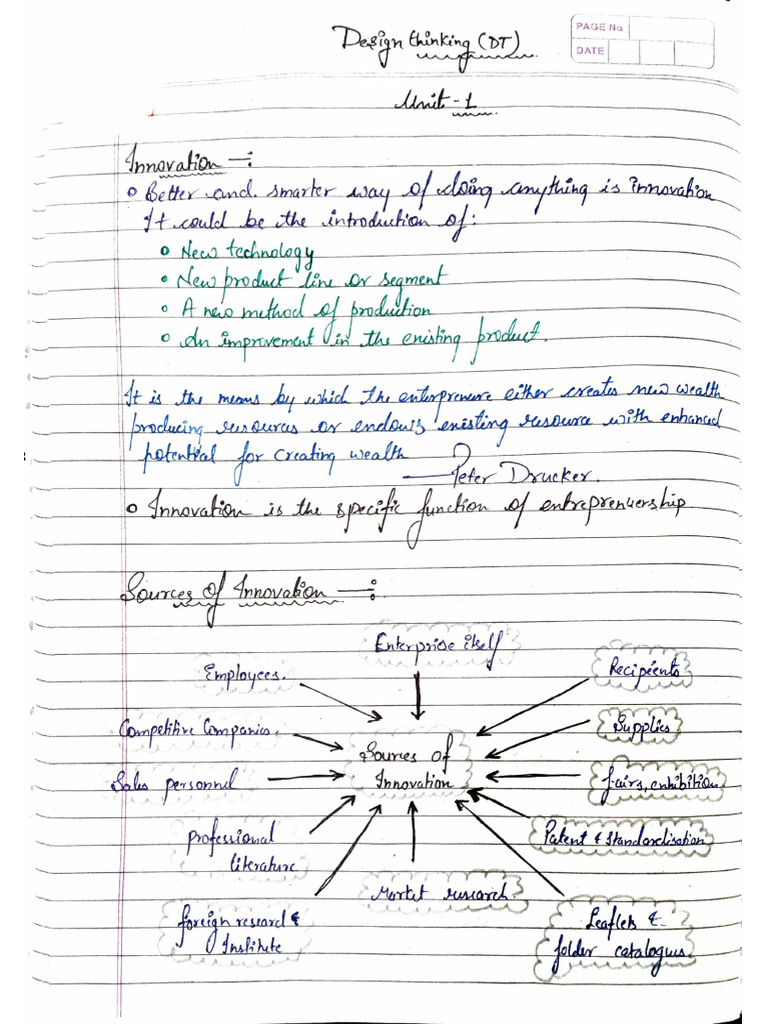 Design thinking (DT)
PAGE No.
DATE
Unit - 1
Innovation :-
Better and smarter way of doing anything is innovation
It could be the introduction of:
New technology
New product line or segment
A new method of production
An improvement in the existing product.
It is the means by which the enterpreneure either creates new wealth
producing resources or endows existing resource with enhanced
potential for creating wealth
— Peter Drucker.
Innovation is the specific function of entreprenuership.
Sources of Innovation :-
Enterprise itself
Employees.
Recipients
Competitive Companies.
Supplies
Sources of
Innovation
Sales personnel
fairs, exhibition
professional
literature
Patent & Standardisation
Market research
foreign research &
Institute
Leaflets &
folder catalogues.